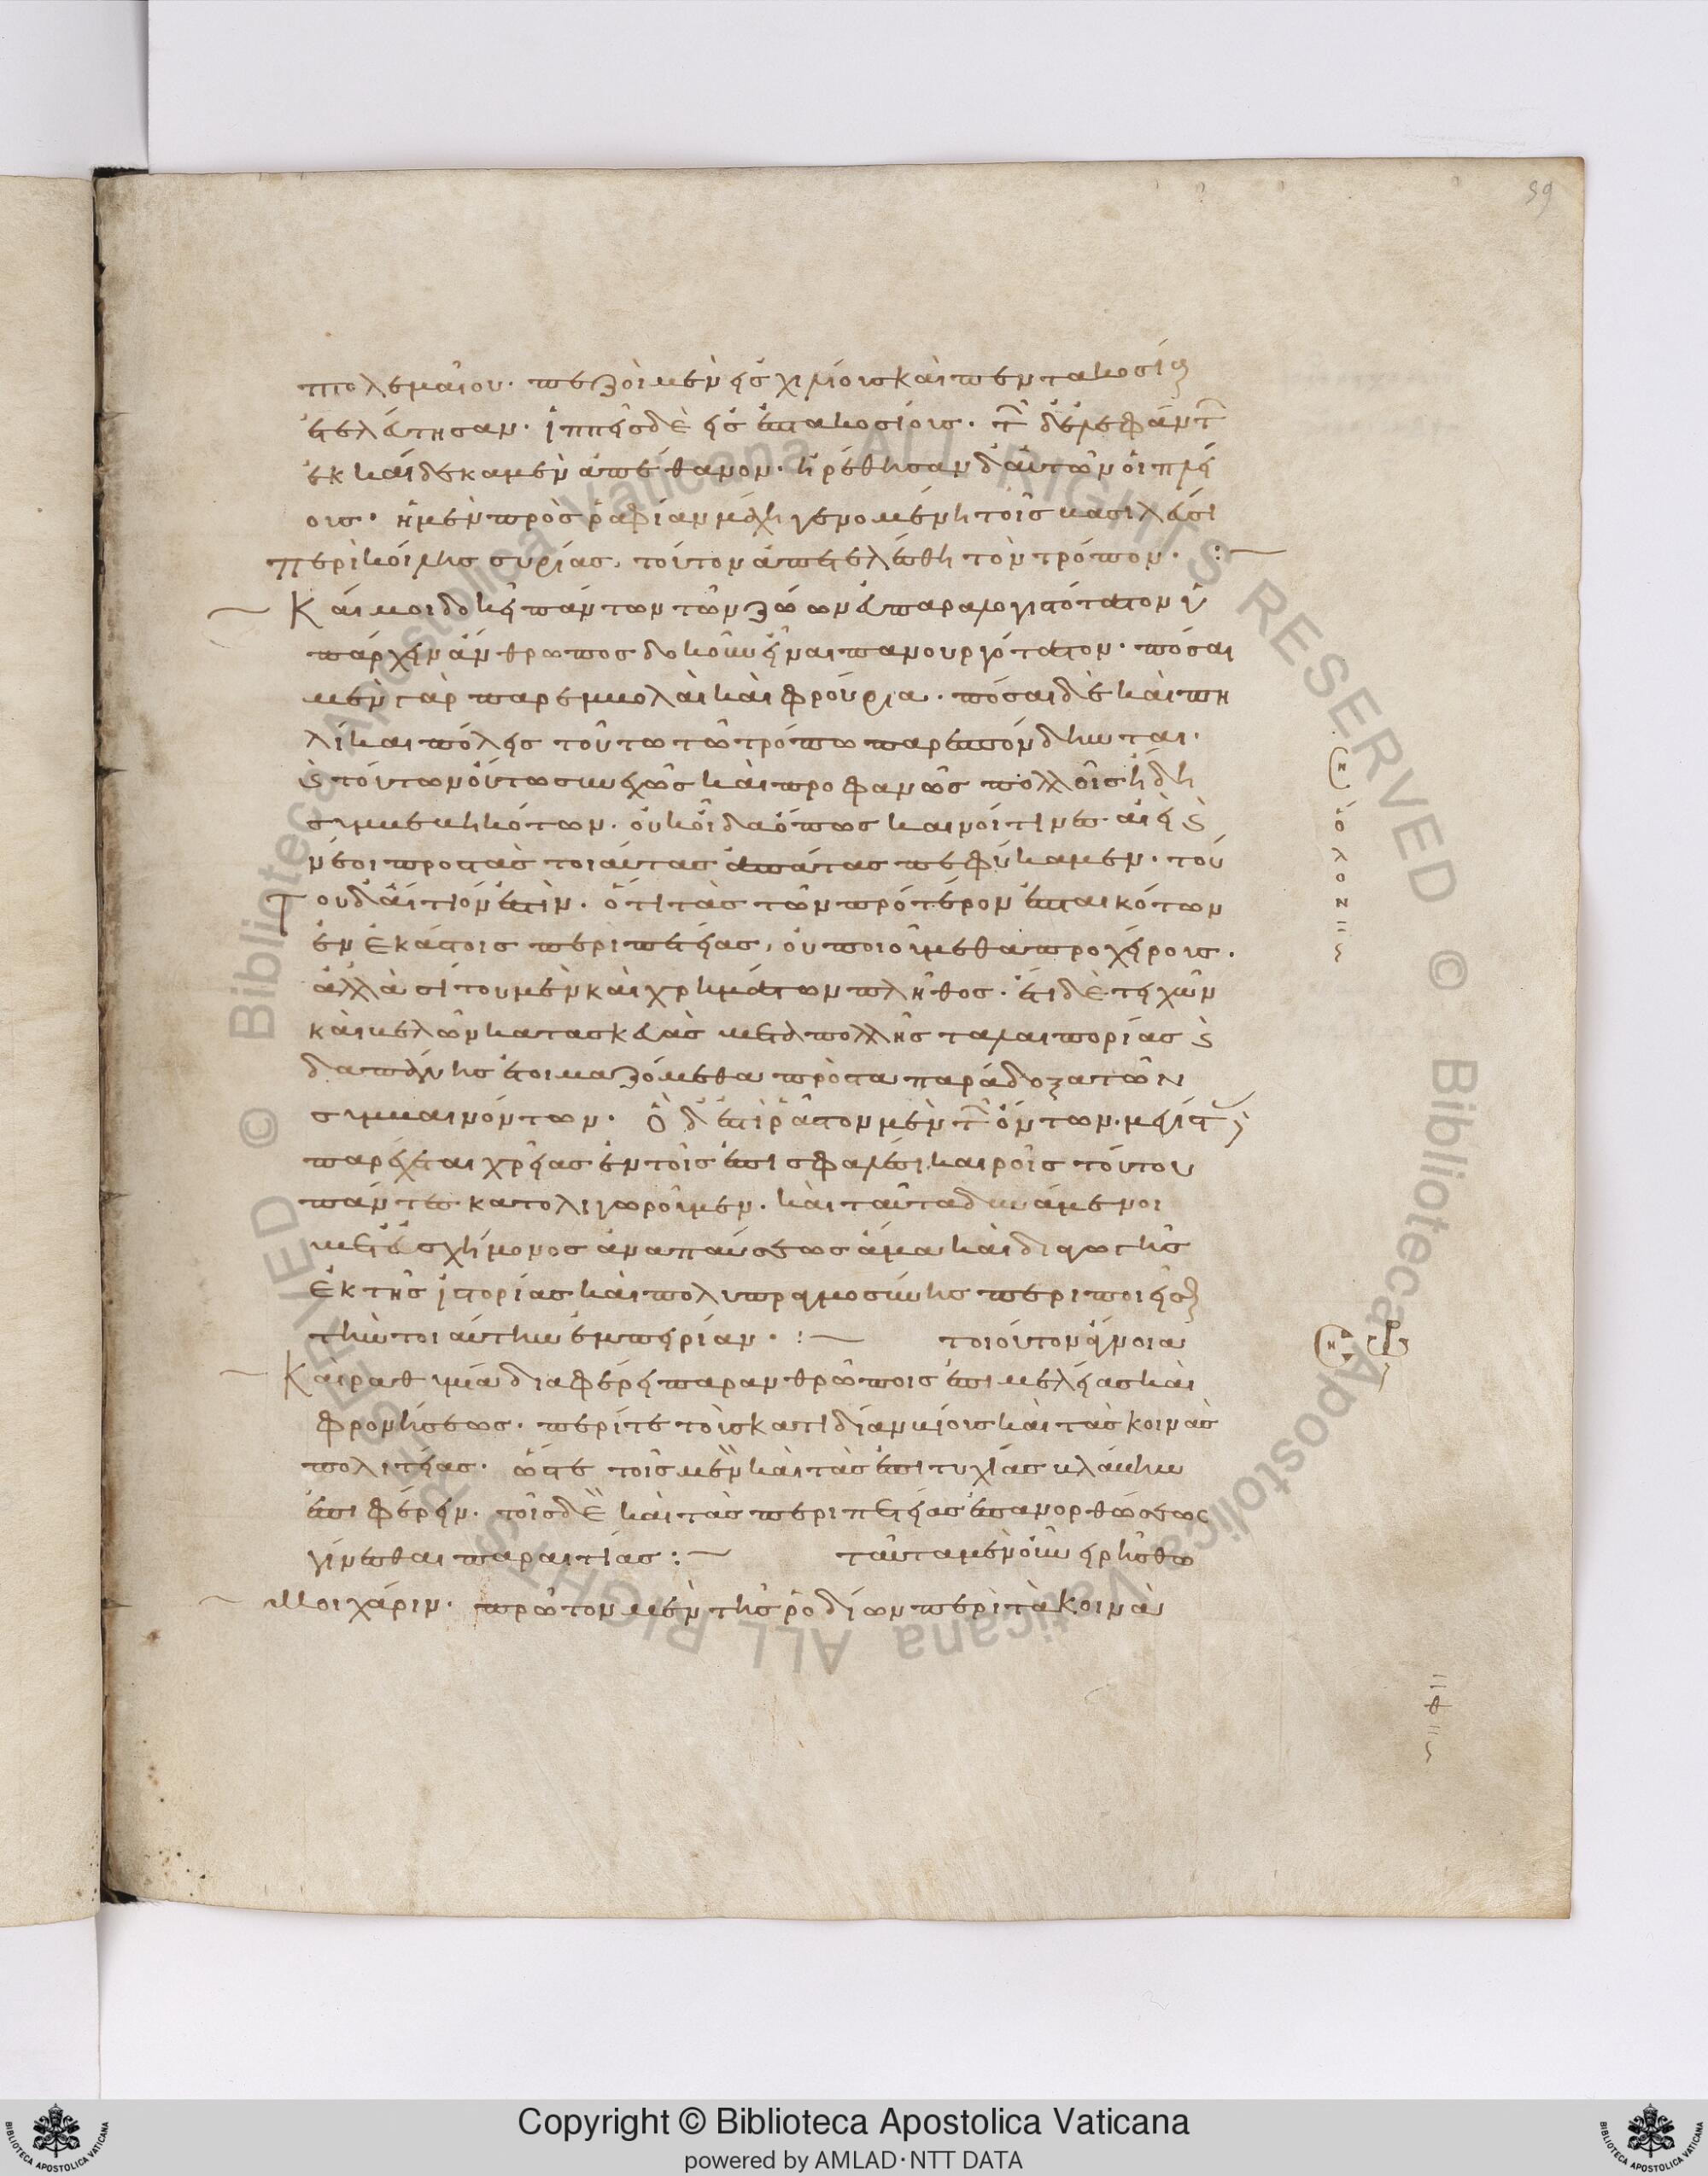 59
πτολεμαίου· πεζοὶ μὲν εἰς χιλίους καὶ πεντακοσίους
ἐτελεύτησαν· ἱππεῖς δὲ εἰς ἑπτακοσίους· τῶν δ' ἐλεφάντων
ἑκκαίδεκα μὲν ἀπέθανον· ἡρέθησαν δ' αὐτῶν οἱ πλεί
ους· ἡ μὲν πρὸς ῥαφίαν μάχη γενομένη τοῖς βασιλεῦσι
περὶ κοίλης συρίας, τοῦτον ἀπετελέσθη τὸν τρόπον· :~
Καί μοι δοκεῖ πάντων τῶν ζώων εὐπαραλογιστότατον ὑ
πάρχειν ἄνθρωπος δοκοῦν εἶναι πανουργότατον· πόσαι
μὲν γὰρ παρεμβολαὶ καὶ φρούρια· πόσαι δὲ καὶ πη
λίκαι πόλεις τούτω τῶ τρόπω παρεσπόνδηνται·
καὶ τούτων οὕτω συνεχῶς καὶ προφανῶς πολλοῖς ἤδη
συμβεβηκότων· οὐκ οἶδ' ὅπως καινοί τινες αἰεὶ καὶ
νέοι πρὸς τὰς τοιαύτας ἀπάτας πεφύκαμεν· τού
Του δ' αἴτιόν ἐστιν· ὅτι τὰς τῶν πρότερον ἐπταικότων
ἐν ἑκάστοις περιπετείας, οὐ ποιούμεθα προχείρους·
ἀλλὰ σίτου μὲν καὶ χρημάτων πλῆθος· ἔτι δὲ τειχῶν
καὶ βελῶν κατασκευὰς μετὰ πολλῆς ταλαιπορίας καὶ
δαπάνης ἑτοιμαζόμεθα πρὸς τὰ παράδοξα τῶν
συμβαινόντων· ὃ δ' ἐστὶ ῥᾶστον μὲν τῶν ὄντων· μεγίστας
παρέχεται χρείας ἐν τοῖς ἐπισφαλέσι καιροῖς τούτου
πάντες κατολιγωροῦμεν· καὶ ταῦτα δυνάμενοι
μετ' εὐσχήμονος ἀναπαύσεως ἅμα καὶ διαγωγῆς
ἐκ τῆς ἱστορίας καὶ πολυπραγμοσύνης περιποιεῖσθαι
τὴν τοιαύτην ἐμπειρίαν· :~ τοιοῦτον ἄνοια
Καὶ ῥαθυμία διαφέρει παρ' ἀνθρώποις ἐπιμελείας καὶ
φρονήσεως· περί τε τοὺς κατ' ἰδίαν βίους καὶ τὰς κοινὰς
πολιτείας· ὥστε τοῖς μὲν καὶ τὰς ἐπιτυχίας βλάβην
ἐπιφέρειν· τοῖς δὲ καὶ τὰς περιπετείας ἐπανορθώσεως
γίνεσθαι παραιτίας :~ ταῦτα μὲν οὖν εἰρήσθω
Μοι χάριν· πρῶτον μὲν τῆς ῥοδίων περὶ τὰ κοινὰ
Copyright © Biblioteca Apostolica Vaticana
powered by AMLAD·NTT DATA